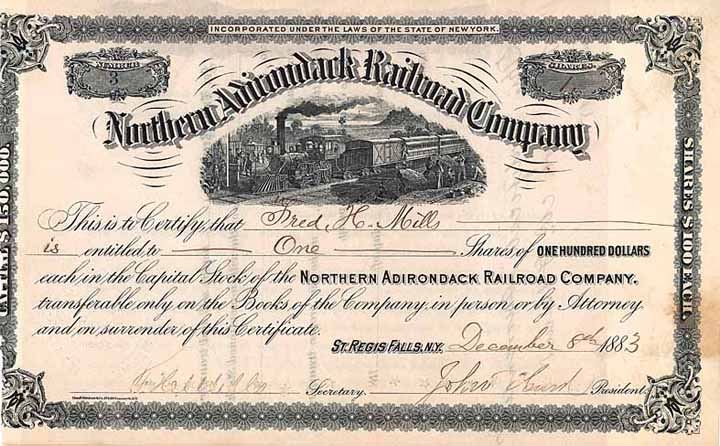 INCORPORATED UNDER THE LAWS OF THE STATE OF NEW YORK.
NUMBER
3
SHARES
1
Northern Adirondack Railroad Company
This is to Certify, that Fred H. Mills
is entitled to One Shares of ONE HUNDRED DOLLARS
each, in the Capital Stock of the NORTHERN ADIRONDACK RAILROAD COMPANY.
transferable only on the Books of the Company in person or by Attorney
and on surrender of this Certificate.
ST. REGIS FALLS, N.Y. December 8th 1883
Secretary. John Hurd President.
CAPITAL $150,000.
SHARES $100 EACH.